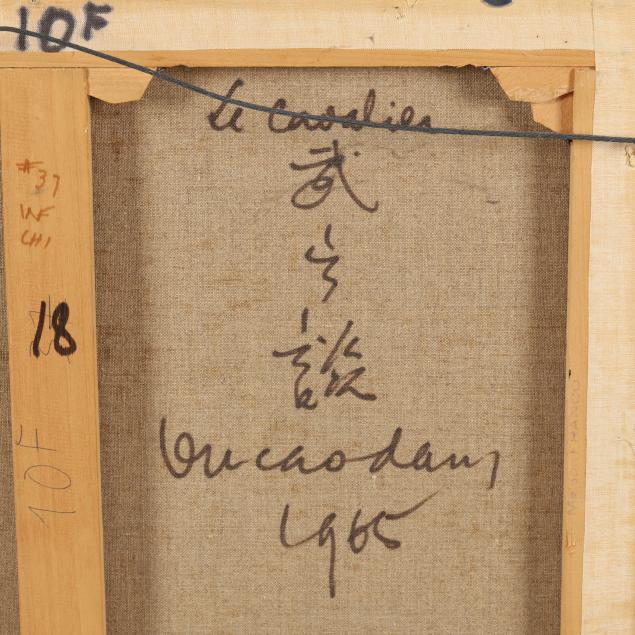 10F
Le Cavalier
武
高
談
Vu cao dam
1965
#37
WF
CHI
18
10F